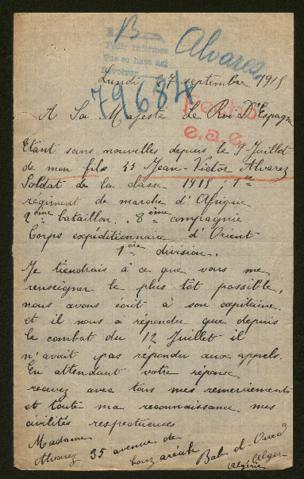 B
Alvarez
Pedir informes
Que se haga así
79684
Lundi 27 septembre 1915
A Sa Majesté Le Roi d'Espagne
Etant sans nouvelles depuis le 9 Juillet
de mon fils Jean-Victor Alvarez
Soldat de la classe 1915, 1er
régiment de marche d'Afrique
2ème bataillon. 8ème compagnie
Corps expéditionnaire d'Orient
1ère division.
Je tiendrais à ce que vous me
renseigner le plus tôt possible,
nous avons écrit à son capitaine
et il nous a répondu que depuis
le combat du 12 Juillet il
n'avait pas répondu aux appels.
En attendant votre réponse
recevez avec tous mes remerciements
et toute ma reconnaissance mes
civilités respectueuses
Madame
Alvarez 35 avenue de
Bab-el-Oued
Alger
Algérie